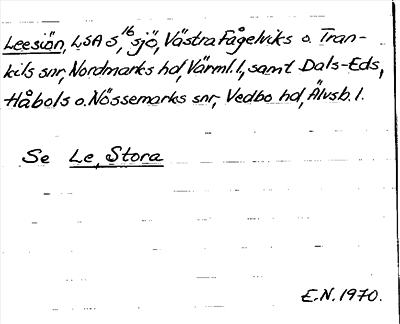 Leesiön, LSA s, 16 sjö, Västra Fågelviks o. Tran-
kils snr, Nordmarks hd, Värml. l, samt Dals-Eds,
Håbols o. Nössemarks snr, Vedbo hd, Älvsb. l.
Se Le, Stora
E.N. 1970.